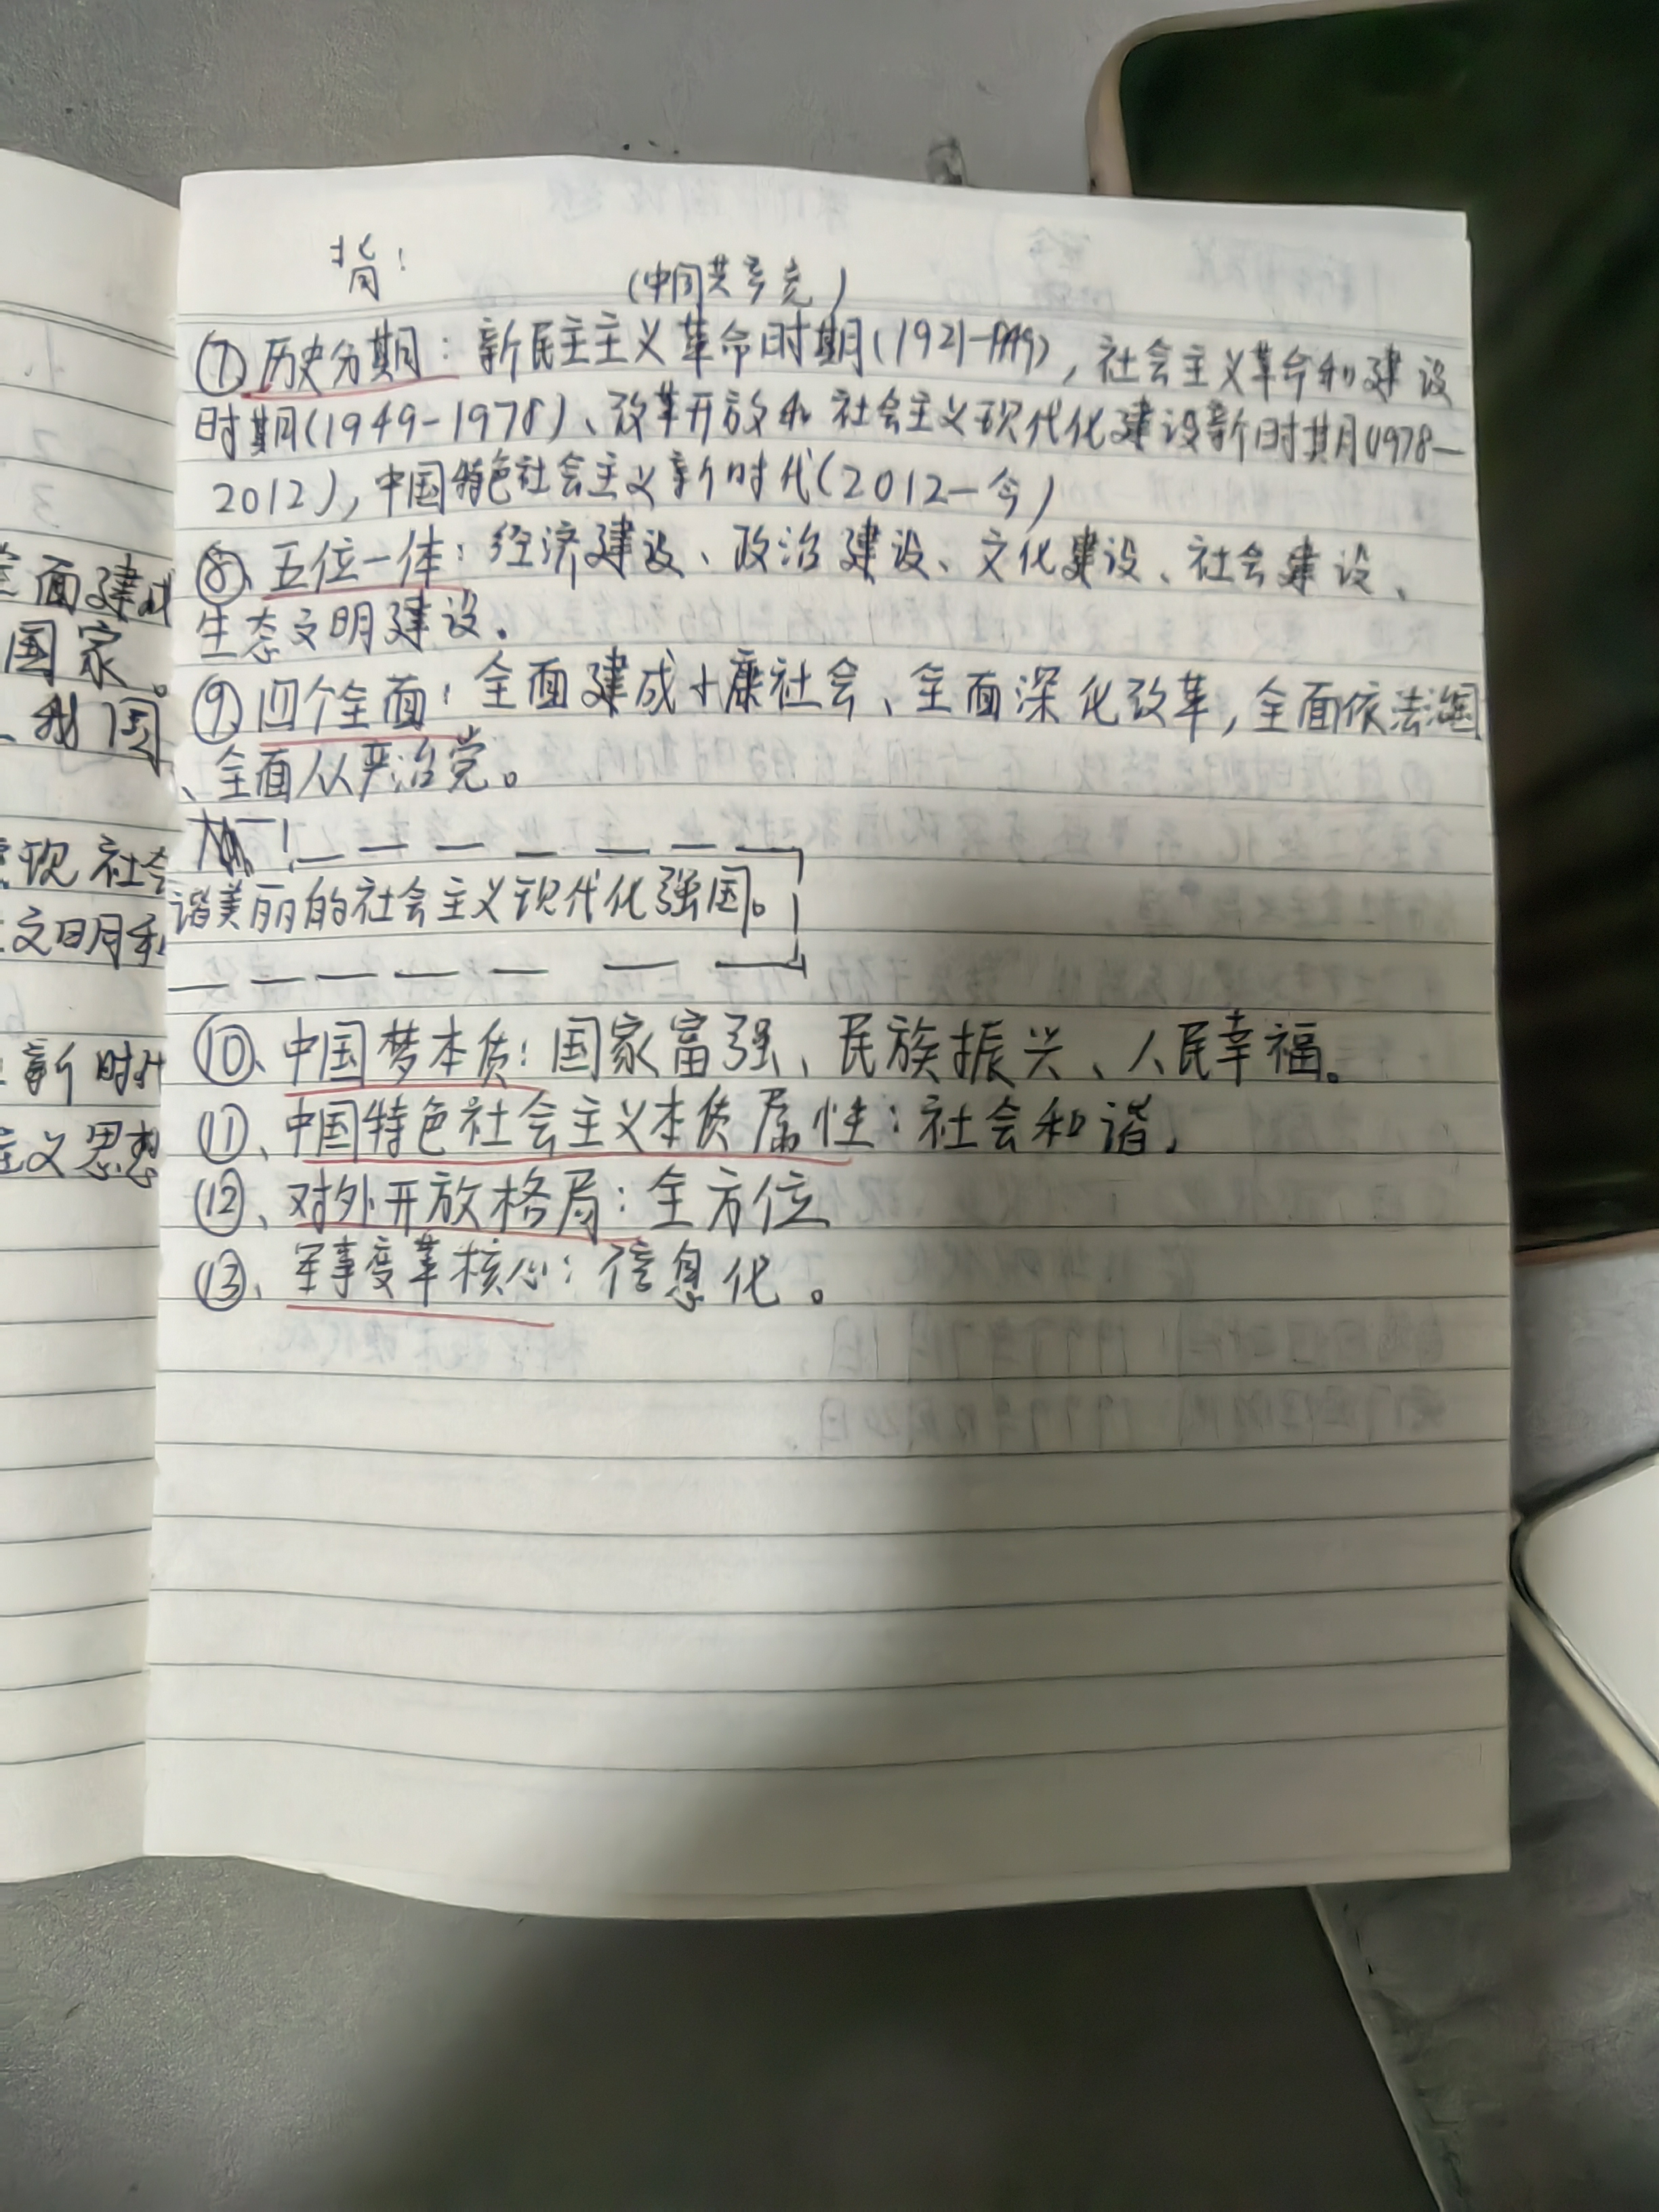 背：
（中国共夸克）
⑦、历史分期：新民主主义革命时期（1921-1949），社会主义革命和建设
时期（1949-1978）、改革开放和社会主义现代化建设新时期（1978—
2012），中国特色社会主义新时代（2012—今）
⑧、五位一体：经济建设、政治建设、文化建设、社会建设、
生态文明建设。
⑨、四个全面：全面建成小康社会、全面深化改革，全面依法治国
、全面从严治党。
谐美丽的社会主义现代化强国。
⑩、中国梦本质：国家富强、民族振兴、人民幸福。
⑪、中国特色社会主义本质属性：社会和谐，
⑫、对外开放格局：全方位
⑬、军事变革核心：信息化。
面建成
国家。
、我国
现社会
文明和
新时代
主义思想